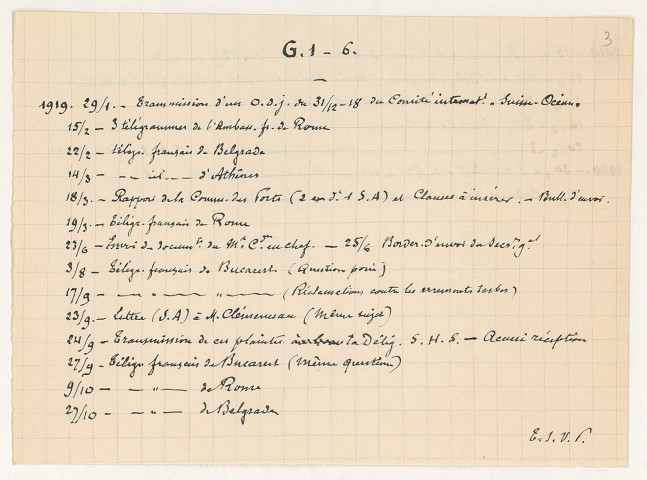 3
G.1 - 6.
1919. 29/1. - Transmission d'un O.d.j. du 31/12-18 du Comité internat.l "Suisse-Océan"
15/2 - 3 télégrammes de l'Ambass. fr. de Rome
22/2 - télégr. français de Belgrade
14/3 - - id - - d'Athènes
18/3. - Rapport de la Comm. des Ports (2 ex. dt 1 S.A) et Clauses à insérer. - Bull. d'envoi.
19/3. - Télégr. français de Rome
23/6 - Envoi de documts. du Mal Ct en chef. - 25/6 Border. d'envoi du Secr. gal
3/8 - Télégr. français de Bucarest (Question posée)
17/9 - - " - - " - (Réclamations contre les errements serbes)
23/9. - Lettre (S.A) à M. Clémenceau (Même sujet)
24/9 - Transmission de ces plaintes à la Délég. S.H.S. - Accusé réception
27/9 - Télégr. français de Bucarest (Même question)
9/10 - - " - de Rome
27/10 - - " - de Belgrade
T.S.V.P.